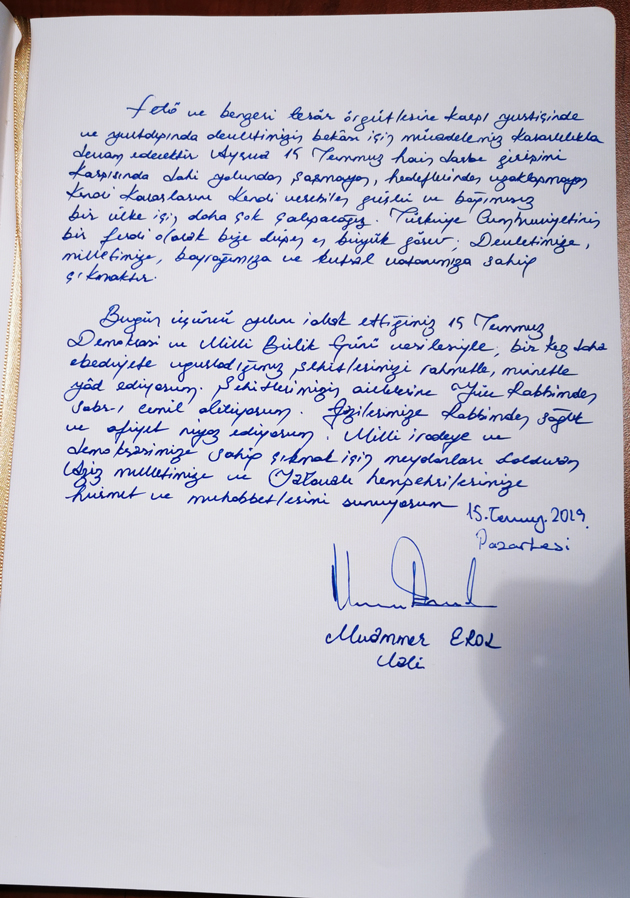 fetö ve benzeri terör örgütlerine karşı yurtiçinde
ve yurtdışında devletimizin bekâsı için mücadelemiz kararlılıkla
devam edecektir. Ayrıca 15 Temmuz hain darbe girişimi
karşısında dahi yolundan şaşmayan, hedeflerinden uzaklaşmayan
Kendi kararlarını kendi verebilen güçlü ve bağımsız
bir ülke için daha çok çalışacağız. Türkiye Cumhuriyetinin
bir ferdi olarak bize düşen en büyük görev; Devletimize,
milletimize, bayrağımıza ve kutsal vatanımıza sahip
çıkmaktır.
Bugün üçüncü yılını idrak ettiğimiz 15 Temmuz
Demokrasi ve Milli Birlik Günü vesilesiyle, bir kez daha
ebediyete uğurladığımız şehitlerimizi rahmetle, minnetle
yâd ediyorum. Şehitlerimizin ailelerine Yüce Rabbimden
sabr-ı cemil diliyorum. Gazilerimize Rabbimden sağlık
ve afiyet niyaz ediyorum. Milli iradeye ve
demokrasimize sahip çıkmak için meydanları dolduran
Aziz milletimize ve Yalovalı hemşehrilerimize
hürmet ve muhabbetlerimi sunuyorum
15.Temmuz.2019.
Pazartesi
Muammer EROL
Vali